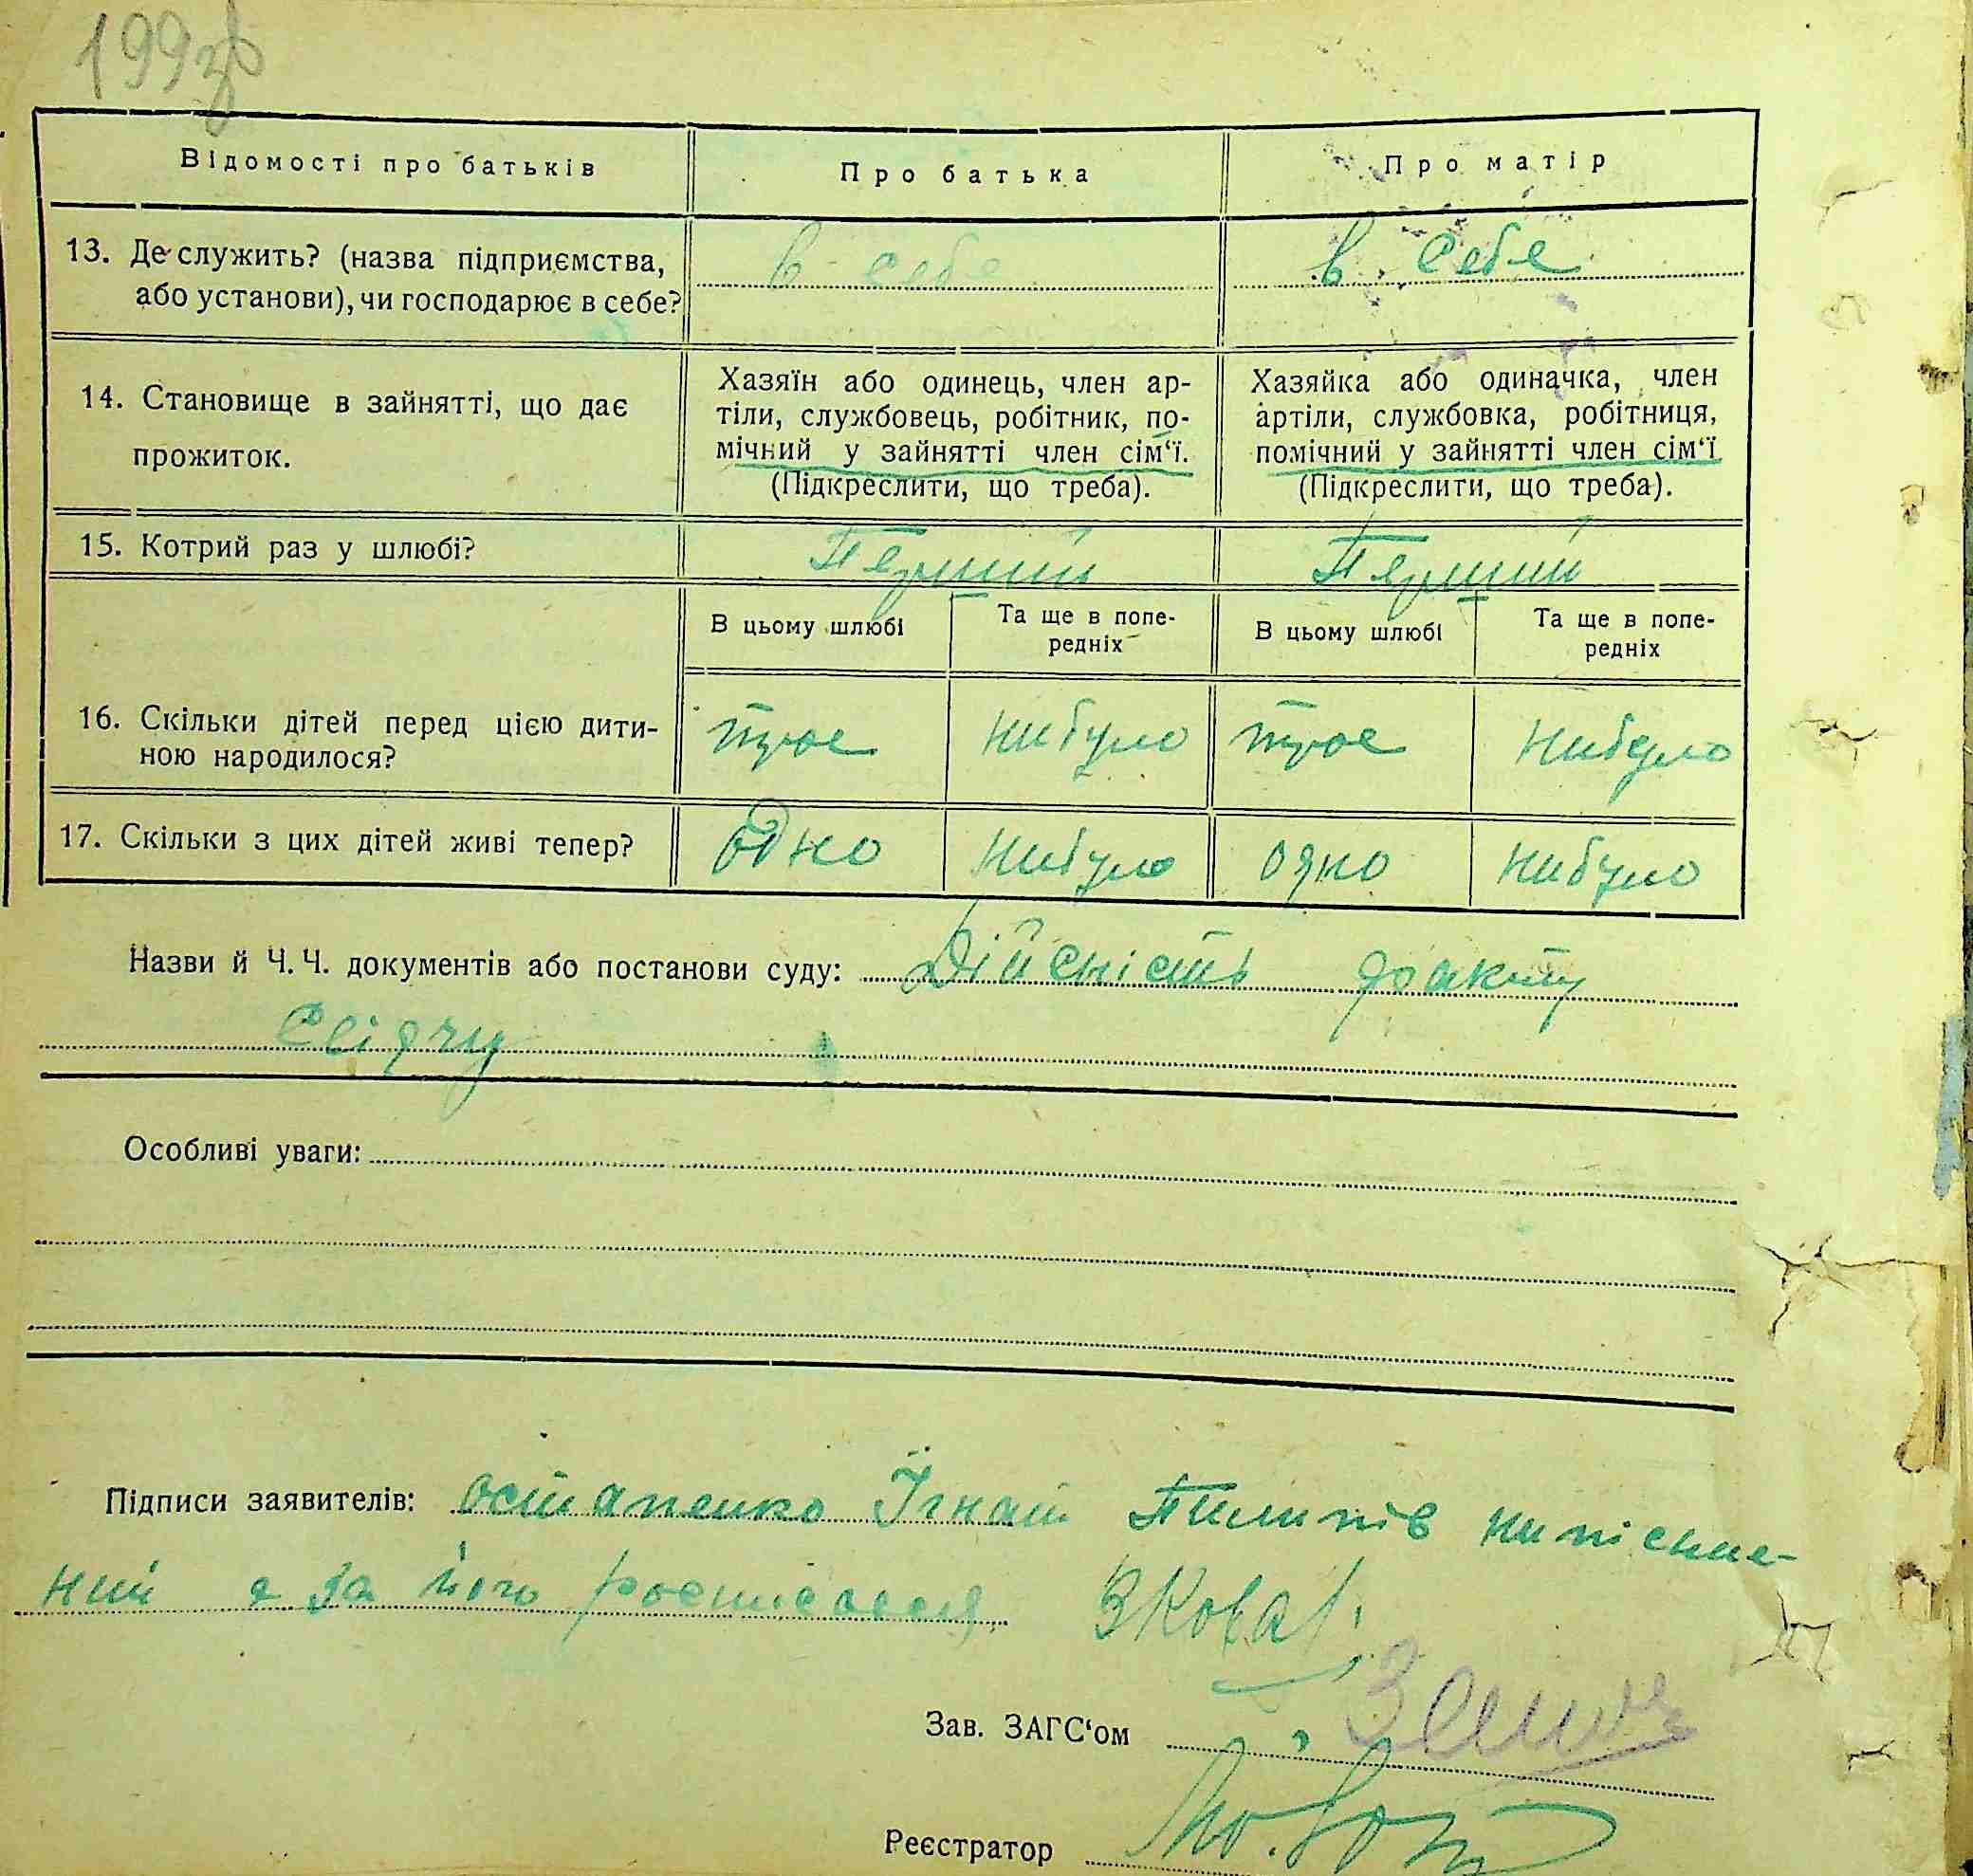 199зв
Відомості про батьків
Про батька
Про матір
13. Де служить? (назва підприємства,
або установи), чи господарює в себе?
в себе
в себе
14. Становище в зайнятті, що дає
прожиток.
Хазяїн або одинець, член ар-
тіли, службовець, робітник, по-
мічний у зайнятті член сім‘ї.
(Підкреслити, що треба).
Хазяйка або одиначка, член
артіли, службовка, робітниця,
помічний у зайнятті член сім‘ї
(Підкреслити, що треба).
15. Котрий раз у шлюбі?
Перший
Перший
В цьому шлюбі
Та ще в попе-
редніх
В цьому шлюбі
Та ще в попе-
редніх
16. Скільки дітей перед цією дити-
ною народилося?
трое
нибуло
трое
нибуло
17. Скільки з цих дітей живі тепер?
одно
нибуло
одно
нибуло
Назви й Ч. Ч. документів або постанови суду: Дійсність доакту
свідчу
Особливі уваги:
Підписи заявителів: остапенко Їгнат Пилипів ниписме-
ний а за його росписався ВКовал
Зав. ЗАГС‘ом
Реєстратор